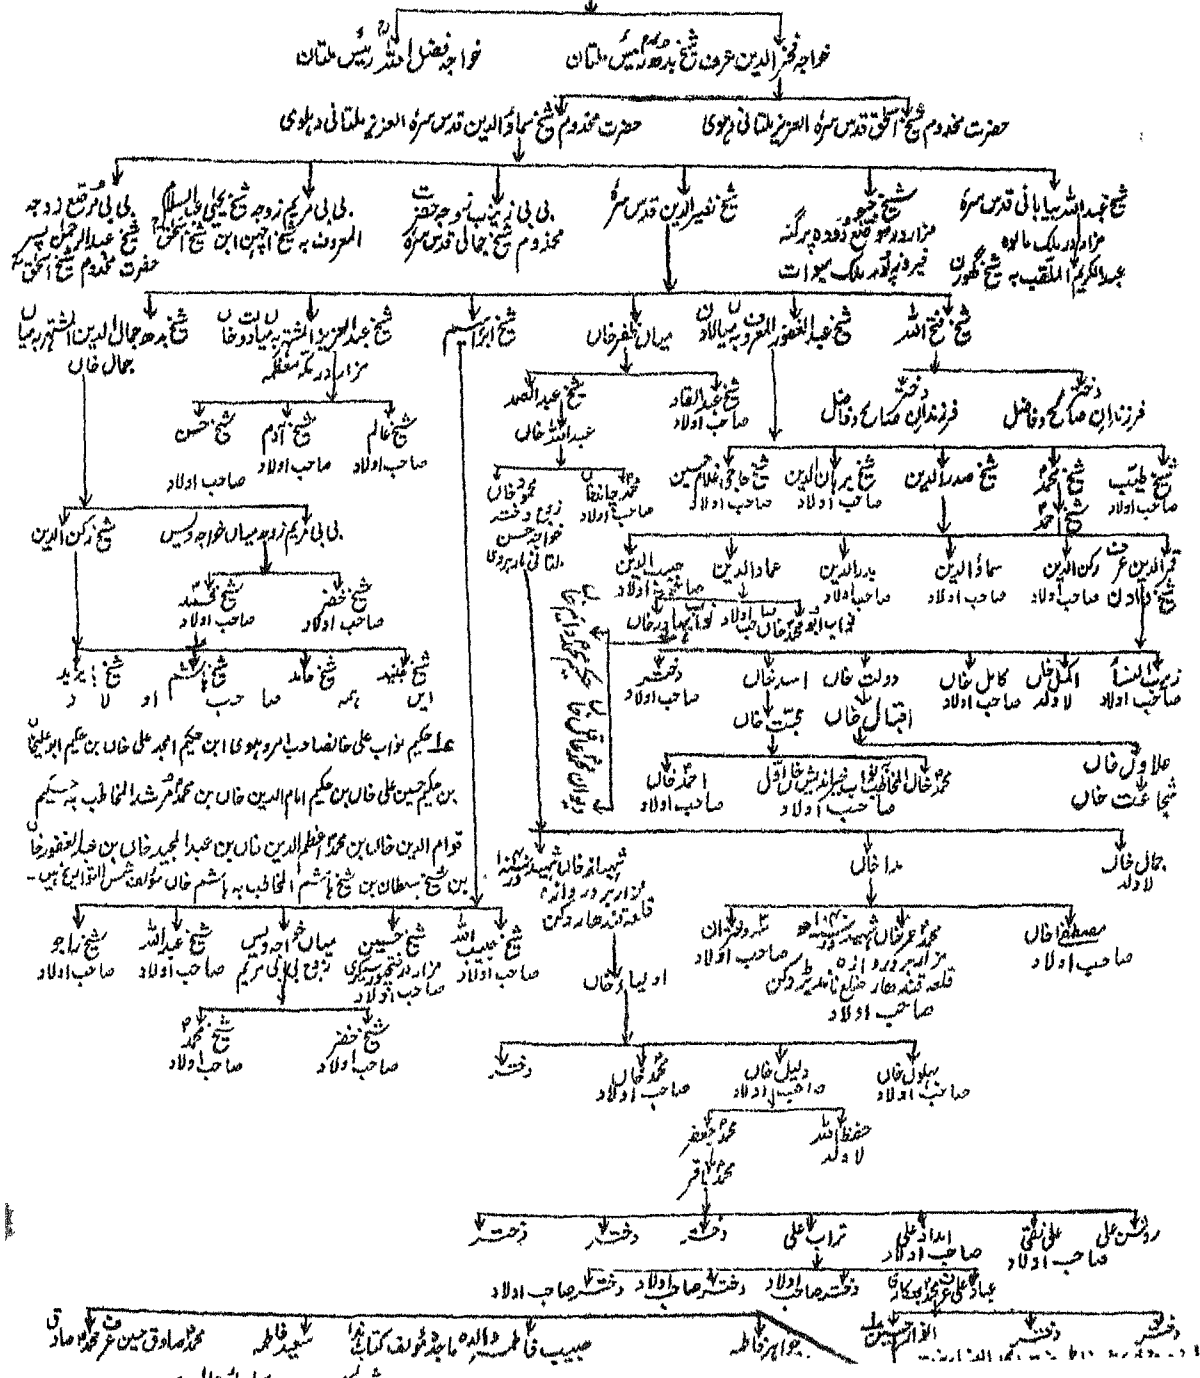 خواجہ فخر الدین عرف شیخ بدھ رئیس ملتان
خواجہ فضل اللہ رئیس ملتان
حضرت مخدوم شیخ اسحٰق قدس سرہ العزیز ملتانی دہلوی
حضرت مخدوم شیخ سماؤ الدین قدس سرہ العزیز ملتانی دہلوی
شیخ عبد اللہ بیابانی قدس سرہ
مزار در ملک مالوہ
عبد الکریم الملقب بہ شیخ گھورن
شیخ
مزار در موضع پرگنہ
فیروزپور در ملک میوات
شیخ نصیر الدین قدس سرہ
بی بی زینب زوجہ حضرت
مخدوم شیخ جمالی قدس سرہ
بی بی مریم زوجہ شیخ یحییٰ
المعروف بہ شیخ اچھن ابن شیخ اسحٰق
بی بی مرقع زوجہ
شیخ عبد الرحمٰن پسر
حضرت مخدوم شیخ اسحٰق
شیخ فتح اللہ
شیخ عبد الغفور المعروف بہ میاں لادن
میاں ظفر خاں
شیخ ابراہیم
شیخ عبد العزیز المشتہر بہ میاں دو خاں
مزار در مکہ معظمہ
شیخ بدھ جمال الدین المشتہر بہ میاں
جمال خاں
دختر
فرزندان صالح و فاضل
دختر
فرزندان صالح و فاضل
شیخ عبد القادر
صاحب اولاد
شیخ عبد الصمد
عبد اللہ خاں
شیخ عالم
صاحب اولاد
شیخ آدم
صاحب اولاد
شیخ حسن
صاحب اولاد
شیخ طیب
صاحب اولاد
شیخ محمد
شیخ احمد
شیخ صدر الدین
شیخ برہان الدین
صاحب اولاد
شیخ حاجی غلام حسین
صاحب اولاد
محمد چاند خاں
صاحب اولاد
محمود خاں
زوج دختر
خواجہ حسن
ملتانی مارہروی
بی بی مریم زوجہ میاں خواجہ ویس
شیخ رکن الدین
قمر الدین عرف
شیخ دادن
رکن الدین
صاحب اولاد
سماؤ الدین
صاحب اولاد
بدر الدین
صاحب اولاد
عماد الدین
صاحب اولاد
حبیب الدین
صاحب اولاد
نواب ابو محمد خاں
نواب بہادر خاں
شیخ خضر
صاحب اولاد
شیخ محمد
صاحب اولاد
حکیم محمد دائم خاں
دیوان محمد عاقل خاں
زیب النساء
صاحب اولاد
اکمل خاں
لا ولد
کامل خاں
صاحب اولاد
دولت خاں
اقبال خاں
اسد خاں
محبت خاں
دختر
صاحب اولاد
شیخ جنید
شیخ حامد
شیخ ہاشم
شیخ بایزید
ایں ہمہ صاحب اولاد
علاول خاں
شجاعت خاں
محمد خاں المخاطب بہ نواب خیر اندیش خاں اول
صاحب اولاد
احمد خاں
صاحب اولاد
عـہ حکیم نواب علی خاں صاحب امروہوی ابن حکیم امجد علی خاں بن حکیم ابو علی خاں
بن حکیم حسین علی خاں بن حکیم امام الدین خاں بن محمد مرشد المخاطب بہ حکیم
قوام الدین خاں بن محمد اعظم الدین خاں بن عبد المجید خاں بن عبد الغفور خاں
بن شیخ سلطان بن شیخ ہاشم المخاطب بہ ہاشم خاں مؤلف شمس التواریخ ہیں۔
جمال خاں
لا ولد
مدا خاں
شہداد خاں شہید در
مزار بر دروازہ
قلعہ قندھار دکن
مصطفیٰ خاں
صاحب اولاد
محمد عمر خاں شہید در
مزار بر دروازہ
قلعہ قندھار ضلع ناندیڑ دکن
صاحب اولاد
سہ دختران
صاحب اولاد
اولیاء خاں
شیخ حبیب اللہ
صاحب اولاد
شیخ حسین
مزار در فتحپور سیکری
صاحب اولاد
میاں خواجہ ویس
زوج بی بی مریم
شیخ عبد اللہ
صاحب اولاد
شیخ راجو
صاحب اولاد
شیخ خضر
صاحب اولاد
شیخ محمد
صاحب اولاد
بہلول خاں
صاحب اولاد
دلیل خاں
صاحب اولاد
محمد خاں
صاحب اولاد
دختر
حفظ اللہ
لا ولد
محمد جعفر
محمد باقر
روشن علی
علی نقی
صاحب اولاد
امداد علی
صاحب اولاد
تراب علی
دختر
دختر
دختر
عباد علی عرف محمد بھکاری
دختر صاحب اولاد
دختر صاحب اولاد
دختر صاحب اولاد
دختر
دختر
انوار حسین
جواہر فاطمہ
حبیب فاطمہ والدہ ماجدہ مؤلف کتاب ہذا
سعید فاطمہ
محمد صادق حسین عرف محمد صادق